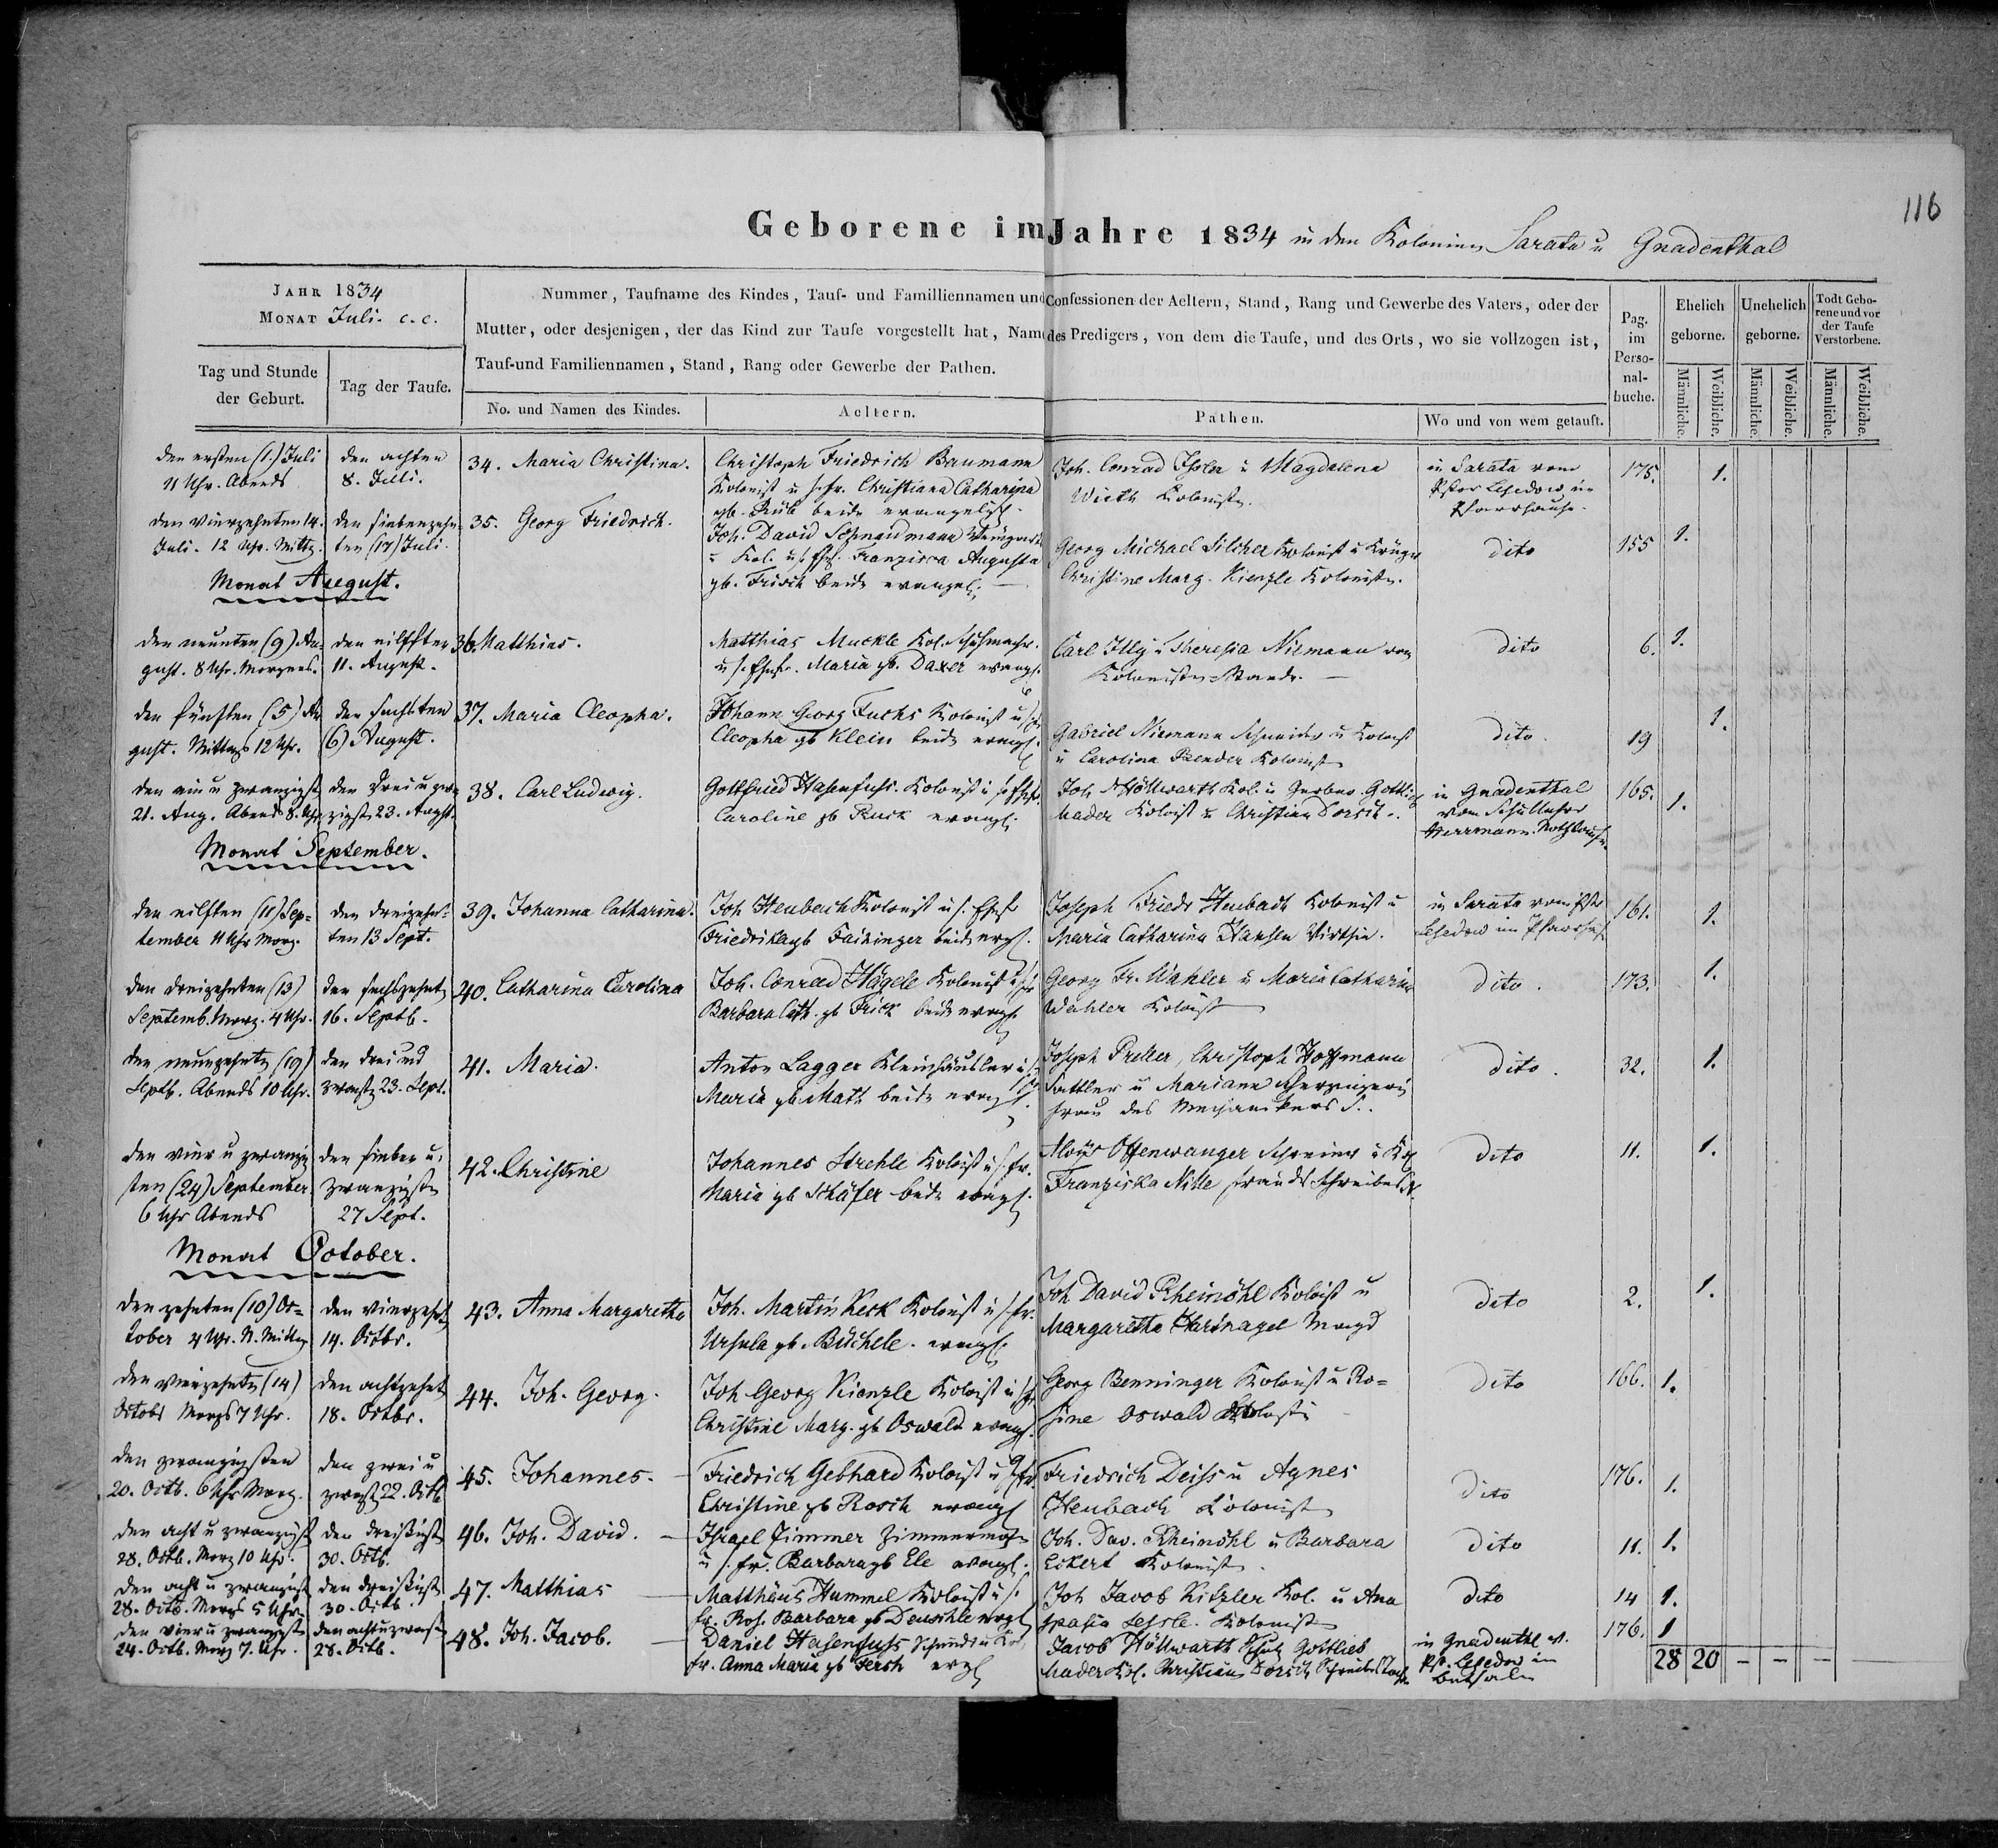 116
Geborene im Jahre 1834 in den Kolonien Sarata u Gnadenthal
JAHR 1834
MONAT Juli. c.c.
Tag und Stunde
der Geburt.
Tag der Taufe.
Nummer, Taufname des Kindes, Tauf- und Familliennamen und Confessionen der Aeltern, Stand, Rang und Gewerbe des Vaters, oder der
Mutter, oder desjenigen, der das Kind zur Taufe vorgestellt hat, Name des Predigers, von dem die Taufe, und des Orts, wo sie vollzogen ist,
Tauf-und Familiennamen, Stand, Rang oder Gewerbe der Pathen.
No. und Namen des Kindes.
Aeltern.
Pathen.
Wo und von wem getauft.
Pag.
im
Perso-
nal-
buche.
Ehelich
geborne.
Unehelich
geborne.
Todt Gebo-
rene und vor
der Taufe
Verstorbene.
Männliche.
Weibliche.
Männliche.
Weibliche.
Männliche.
Weibliche.
den ersten (1.) Juli
11 Uhr. Abends
den achten
8. Juli.
34. Maria Christina.
Christoph Friedrich Baumann
Kolonist u s. fr. Christiana Catharina
gb. Rüb beide evangelisch.
Joh. Conrad Ißler u Magdalena
Wirth Kolonisten.
in Sarata vom
Pastor im
Pfarrhause.
175.
1.
den vierzehnten 14.
Juli. 12 Uhr. Mittg.
den siebenzehn-
ten (17) Juli.
35. Georg Friedrich.
Joh. David Schnaidmann
u Kol. u s. Ehfr. Augusta
gb. Frisch beide evangel.
Georg Michael Silcher Kolonist u Krüger
Christine Marg. Kienzle Kolonisten.
dito
155
1.
Monat August.
den neunten (9) Au-
gust. 8 Uhr. Morgens.
den eilften
11. August.
36. Matthias.
Matthias Muckle Kol.
u s. Ehefr. Maria gb. Daxer evangl.
Carl Illg u Theresia Niemann von
Kolonisten-Stande.
dito
6.
1.
den fünften (5) Au
gust. Mittags 12 Uhr.
den sechsten
(6) August.
37. Maria Cleopha.
Johann Georg Fuchs Kolonist u s. fr
Cleopha gb Klein beide evangl.
Gabriel Niemann Schneider u Kolonist
u Carolina Kolonist
dito.
19
1.
den ein u zwanzigst
21. Aug. Abends 8. Uhr
den drei u zwan
zigst 23. Augst.
38. Carl Ludwig.
Gottfried Hasenfuss. Kolonist u s. Ehefr.
Caroline gb Ruck evangl.
Joh Höllwarth Kol. u Gottlieb
Mader Kolonist u Christina Dorsch.
in Gnadenthal
vom Schullehrer
Herrmann Nothtaufe.
165.
1.
Monat September.
den eilften (11) Sep=
tember 11 Uhr Morg.
den dreizehn-
ten 13 Sept.
39. Johanna Catharina.
Joh Heubach Kolonist u s. Ehefr
Friederika gb Faisinger beide evgl.
Joseph Friedr Heubach Kolonist u
Maria Catharina Hansen Wirthin.
in Sarata vom Past
im Pfarrhs
161.
1.
den dreizehnten (13)
Septemb. Morg. 4 Uhr.
den sechszehnt
16. Septb.
40. Catharina Carolina
Joh. Conrad Hägele Kolonist u s. fr
Barbara Cath. gb Frick beide evangl
Georg Fr. Wahler u Maria Catharina
Wahler Kolonist
dito.
173.
1.
den neunzehnten (19)
Septb. Abends 10 Uhr.
den drei und
zwanzig 23. Sept.
41. Maria.
Anton Lagger Kleinhäusler u s. fr
Maria gb Math beide evangl.
Joseph Preller, Christoph Hoffmann
Sattler u Mariane
Frau des Mechanikers S..
dito.
32.
1.
den vier u zwanzig
sten (24) September
6 Uhr Abends
den sieben u.
zwanzigsten
27 Sept.
42. Christine
Johannes Strehle Kolonist u s. fr.
Maria gb Schäfer beide evangl.
Aloys Offenwanger Schreiner u Kol
Franziska Nille
dito
11.
1.
Monat October.
den zehnten (10) Oc=
tober 4 Uhr. N. Mittag
den vierzehnt
14. Octbr.
43. Anna Margaretha
Joh. Martin Keck Kolonist u s. fr.
Ursula gb. Büchele. evangl.
Joh David Rheinöhl Kolonist u
Margaretha Hartnagel Magd
dito
2.
1.
den vierzehnten (14)
October Morgs 7 Uhr.
den achtzehnt
18. Octbr.
44. Joh. Georg.
Joh Georg Kienzle Kolonist u s. fr
Christine Marg. gb Oswald evangl.
Georg Benninger Kolonist u Ro=
sine Oswald
dito
166.
1.
den zwanzigsten
20. Octb. 6 Uhr Morg.
den zwei u
zwanzg 22. Octb
45. Johannes.
Friedrich Gebhard Kolonist u s. fr
Christine gb Rosch evangl
Friedrich Deiss u Agnes
Heubach Kolonist
dito
176.
1.
den acht u zwanzigst
28. Octb. Morg 10 Uhr.
den dreißigst
30. Octb.
46. Joh. David.
Israel Zimmer Zimmermann
u s. fr. Barbara gb Ele evangl.
Joh. Dav. Rheinöhl u Barbara
Eckert Kolonist.
dito
11.
1.
den acht u zwanzigst
28. Octb. Morgs 5 Uhr
den dreißigst
30. Octb.
47. Matthias
Matthäus Hummel Kolonist u s.
fr. Ros. Barbara gb Deuschle evgl
Joh Jacob Kitzler Kol. u Ana
stasia Kolonist
dito
14
1.
den vier u zwanzigst
24. Octb. Morg 7. Uhr.
den acht u zwanz
28. Octb.
48. Joh. Jacob.
Daniel Hasenfuss Schmidt u Kol,
fr. Anna Maria gb Fersh evgl
Jacob Höllwarth Gottlieb
Mader Kol. Christiana Dorsch
in Gnadenthl v.
Pst. im
Betsale
176.
1
28 20 - - - -